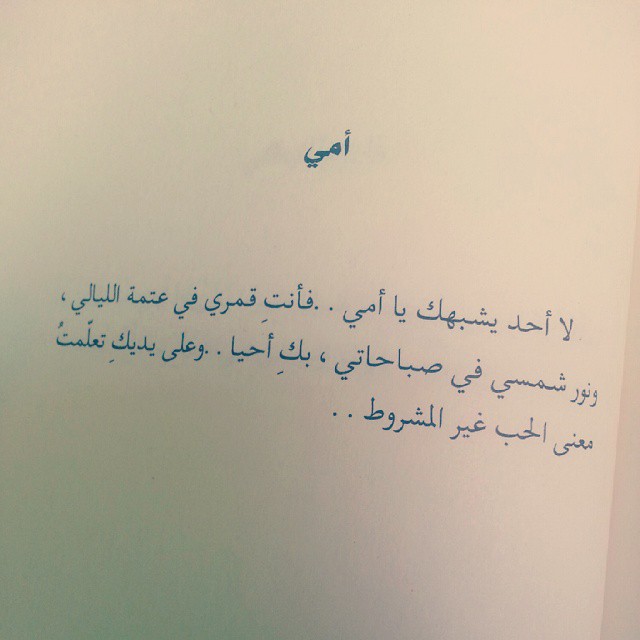 أمي
لا أحد يشبهك يا أمي . .فأنتِ قمري في عتمة الليالي ،
ونور شمسي في صباحاتي ، بكِ أحيا . .وعلى يديكِ تعلّمتُ
معنى الحب غير المشروط . .